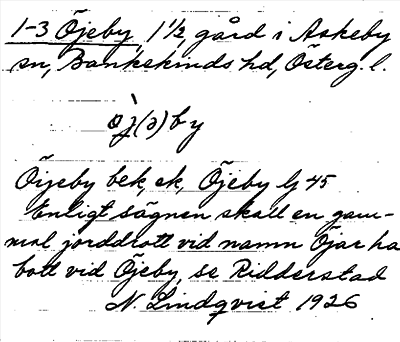 1-3 Öjeby, 1 1/2 gård i Askeby
sn, Bankekinds hd, Österg. l.
ö̀j(ə)by
Öijeby bek, ek, Öjeby Gj 45
Enligt sägnen skall en gam-
mal jorddrott vid namn Öjar ha
bott vid Öjeby, se Ridderstad
N. Lindqvist 1926